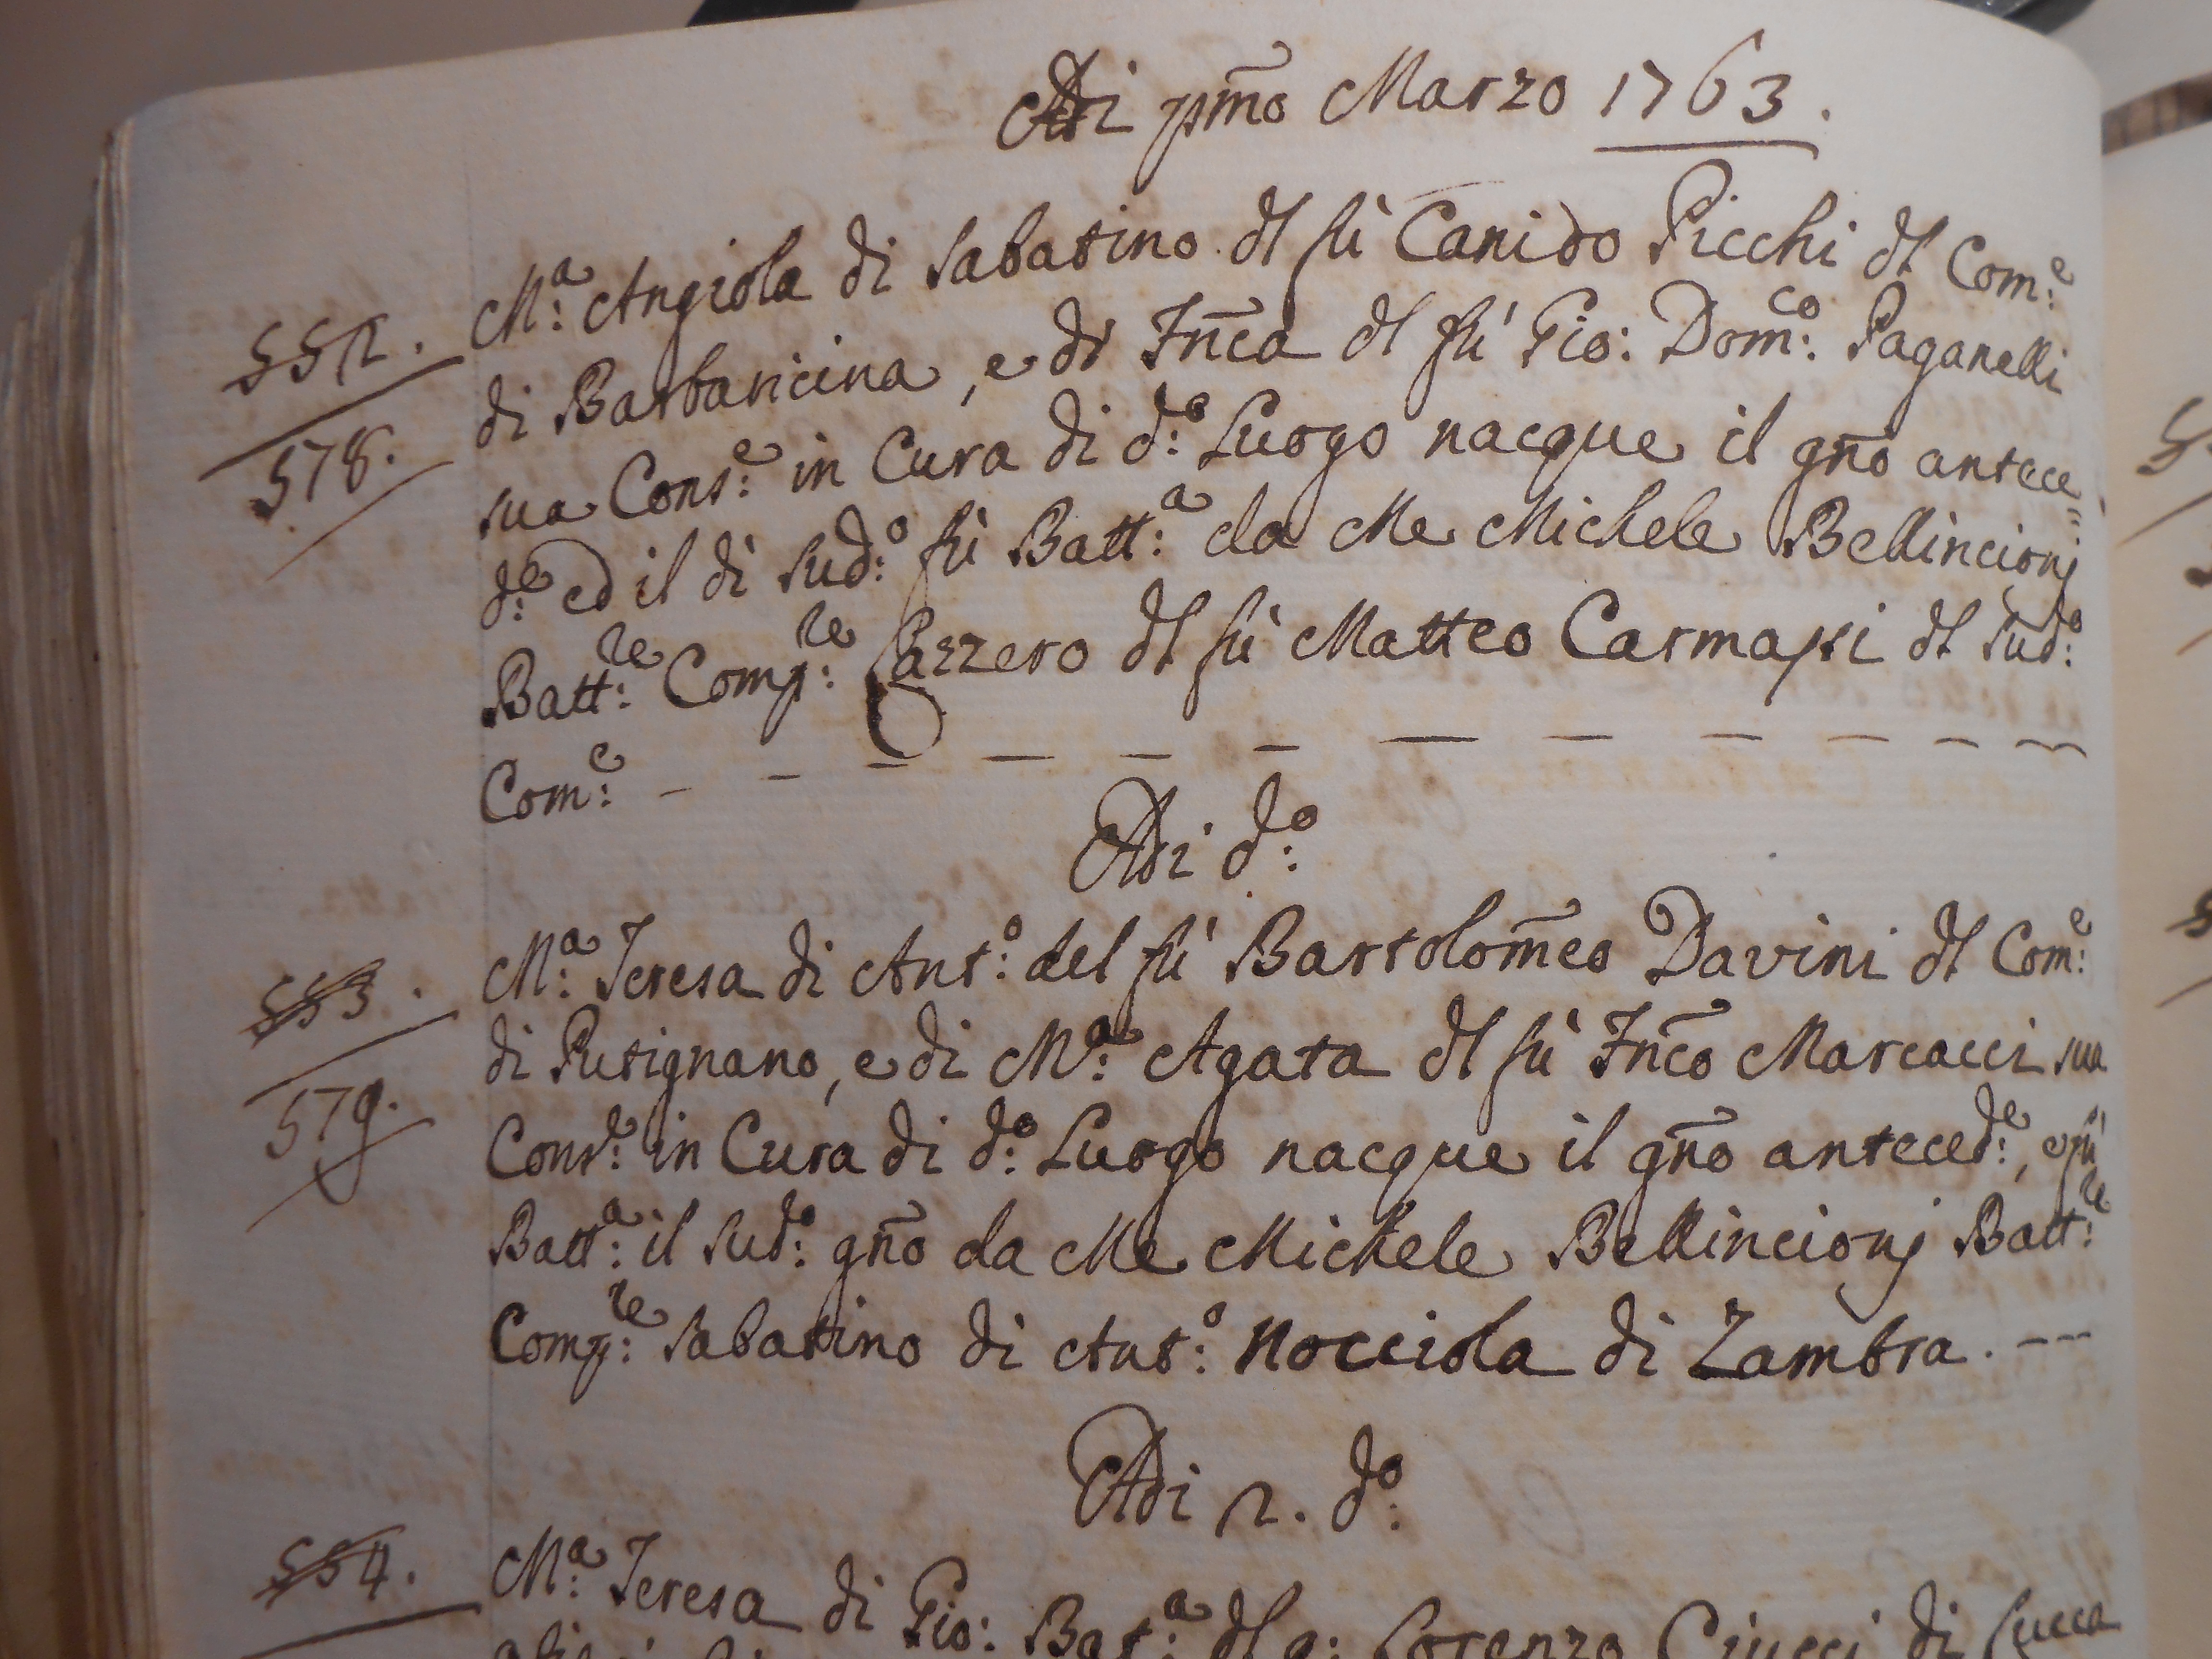 Adi pmo Marzo 1763.
552. Ma: Angiola di Sabatino dl fù Canido Picchi dl Come:
di Barbaricina, e di Fnca dl fù Gio: Domco: Paganelli
578. sua Conse: in Cura di do: Luogo nacque il gno antece=
de: ed il dì sudo: fù Batta: da Me Michele Bellincionj
Battre: Compre: Lazzero dl fù Matteo Carmassi dl sudo:
Come: – – – – – – – – – – – –
Adi do:
553. Ma: Teresa di Anto: del fù Bartolomeo Davini dl Come:
di Putignano, e di Ma: Agata dl fù Fnco Marcacci sua
579. Conse: in Cura di do: Luogo nacque il gno antecede:, e fù
Batta: il sudo: gno da Me Michele Bellincionj Battre:
Compre: Sabatino di Anto: Nocciola di Zambra. – – –
Adi 2. do:
554. Ma: Teresa di Gio: Bata: dl q: Lorenzo Ciucci di Lucca